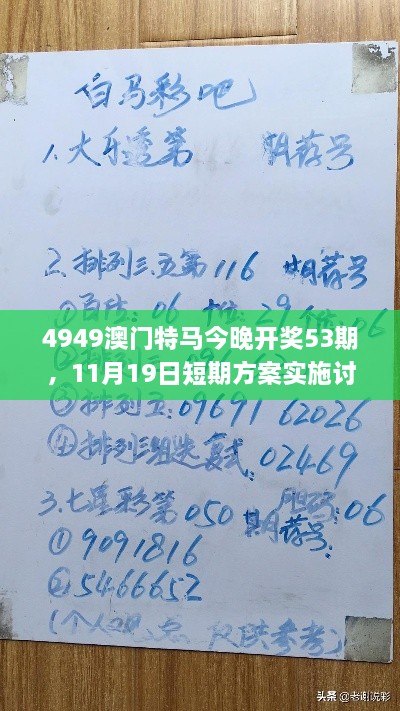 白马彩吧
1、大乐透第 期荐号
2、排列三、五第116期荐号
①百位：06 十位：29 个位：06
4949澳门特马今晚开奖53期
，11月19日短期方案实施讨
③排列五：09691 62026
④排列三组选复式：02469
3、七星彩第050期荐号：
胆码：06
①9091816
②5466652
（个人观点 仅供参考）
头条@老谢说彩